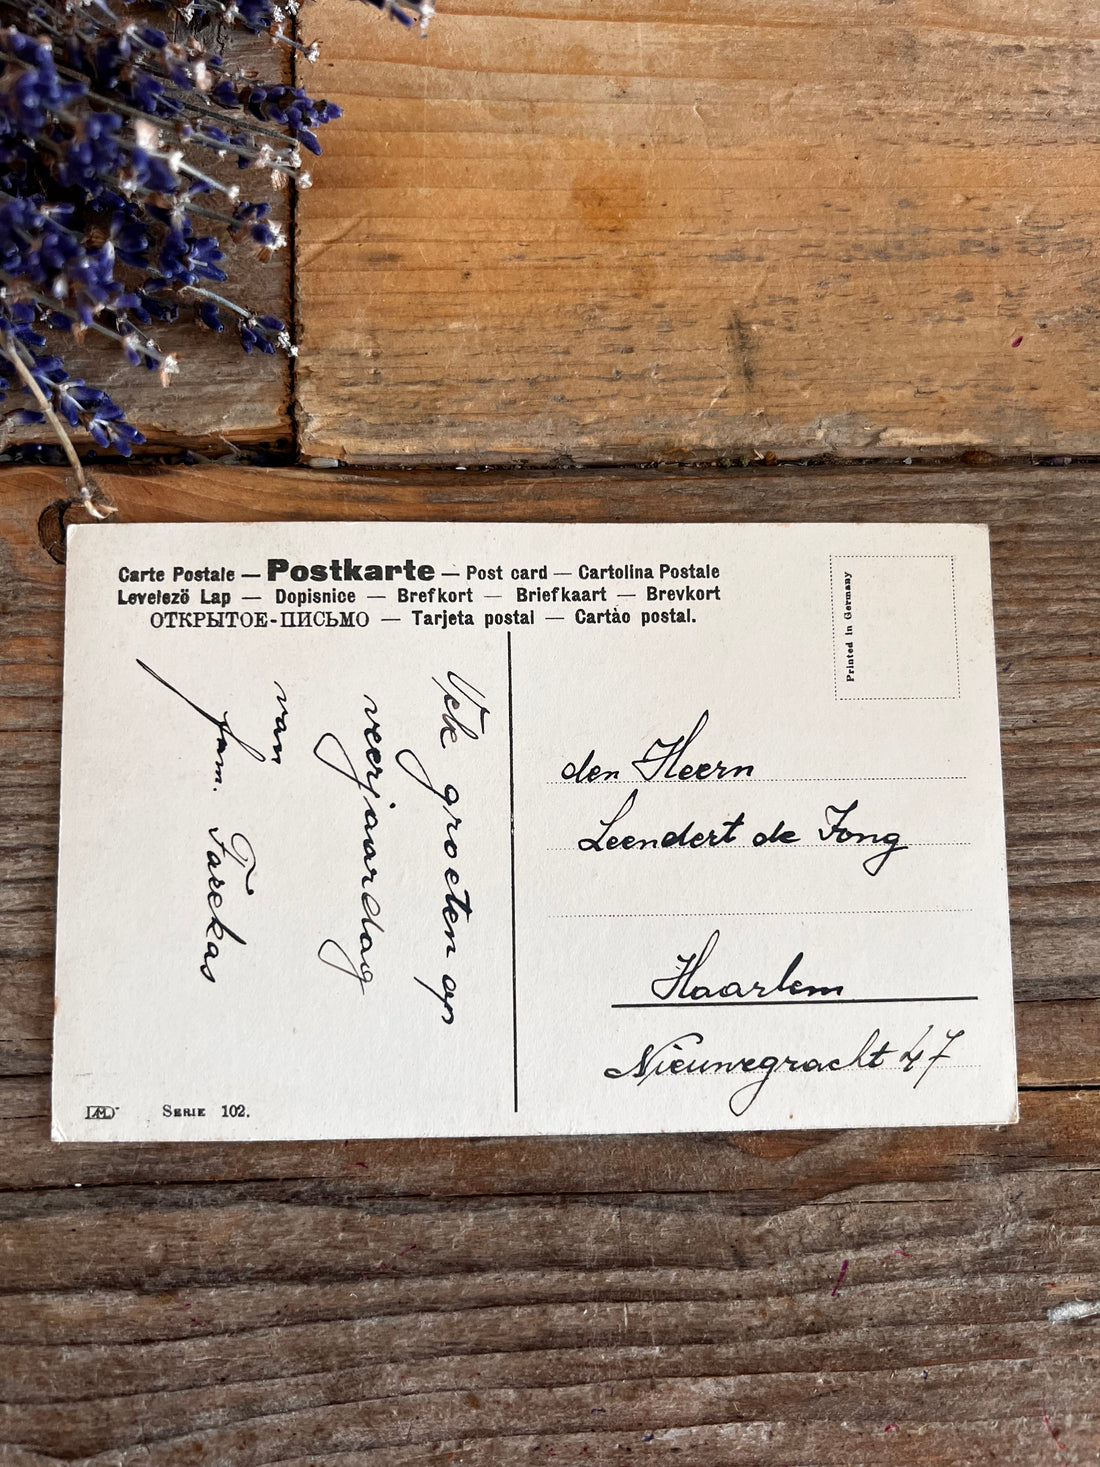 Carte Postale — Postkarte — Post card — Cartolina Postale
Levelezö Lap — Dopisnice — Brefkort — Briefkaart — Brevkort
ОТКРЫТОЕ-ПИСЬМО — Tarjeta postal — Cartào postal.
Printed in Germany
Vek groeten op
veerjaardag
van
fam. Farekas
den Heern
Leendert de Jong
Haarlem
Nieuwegracht 47
SERIE 102.